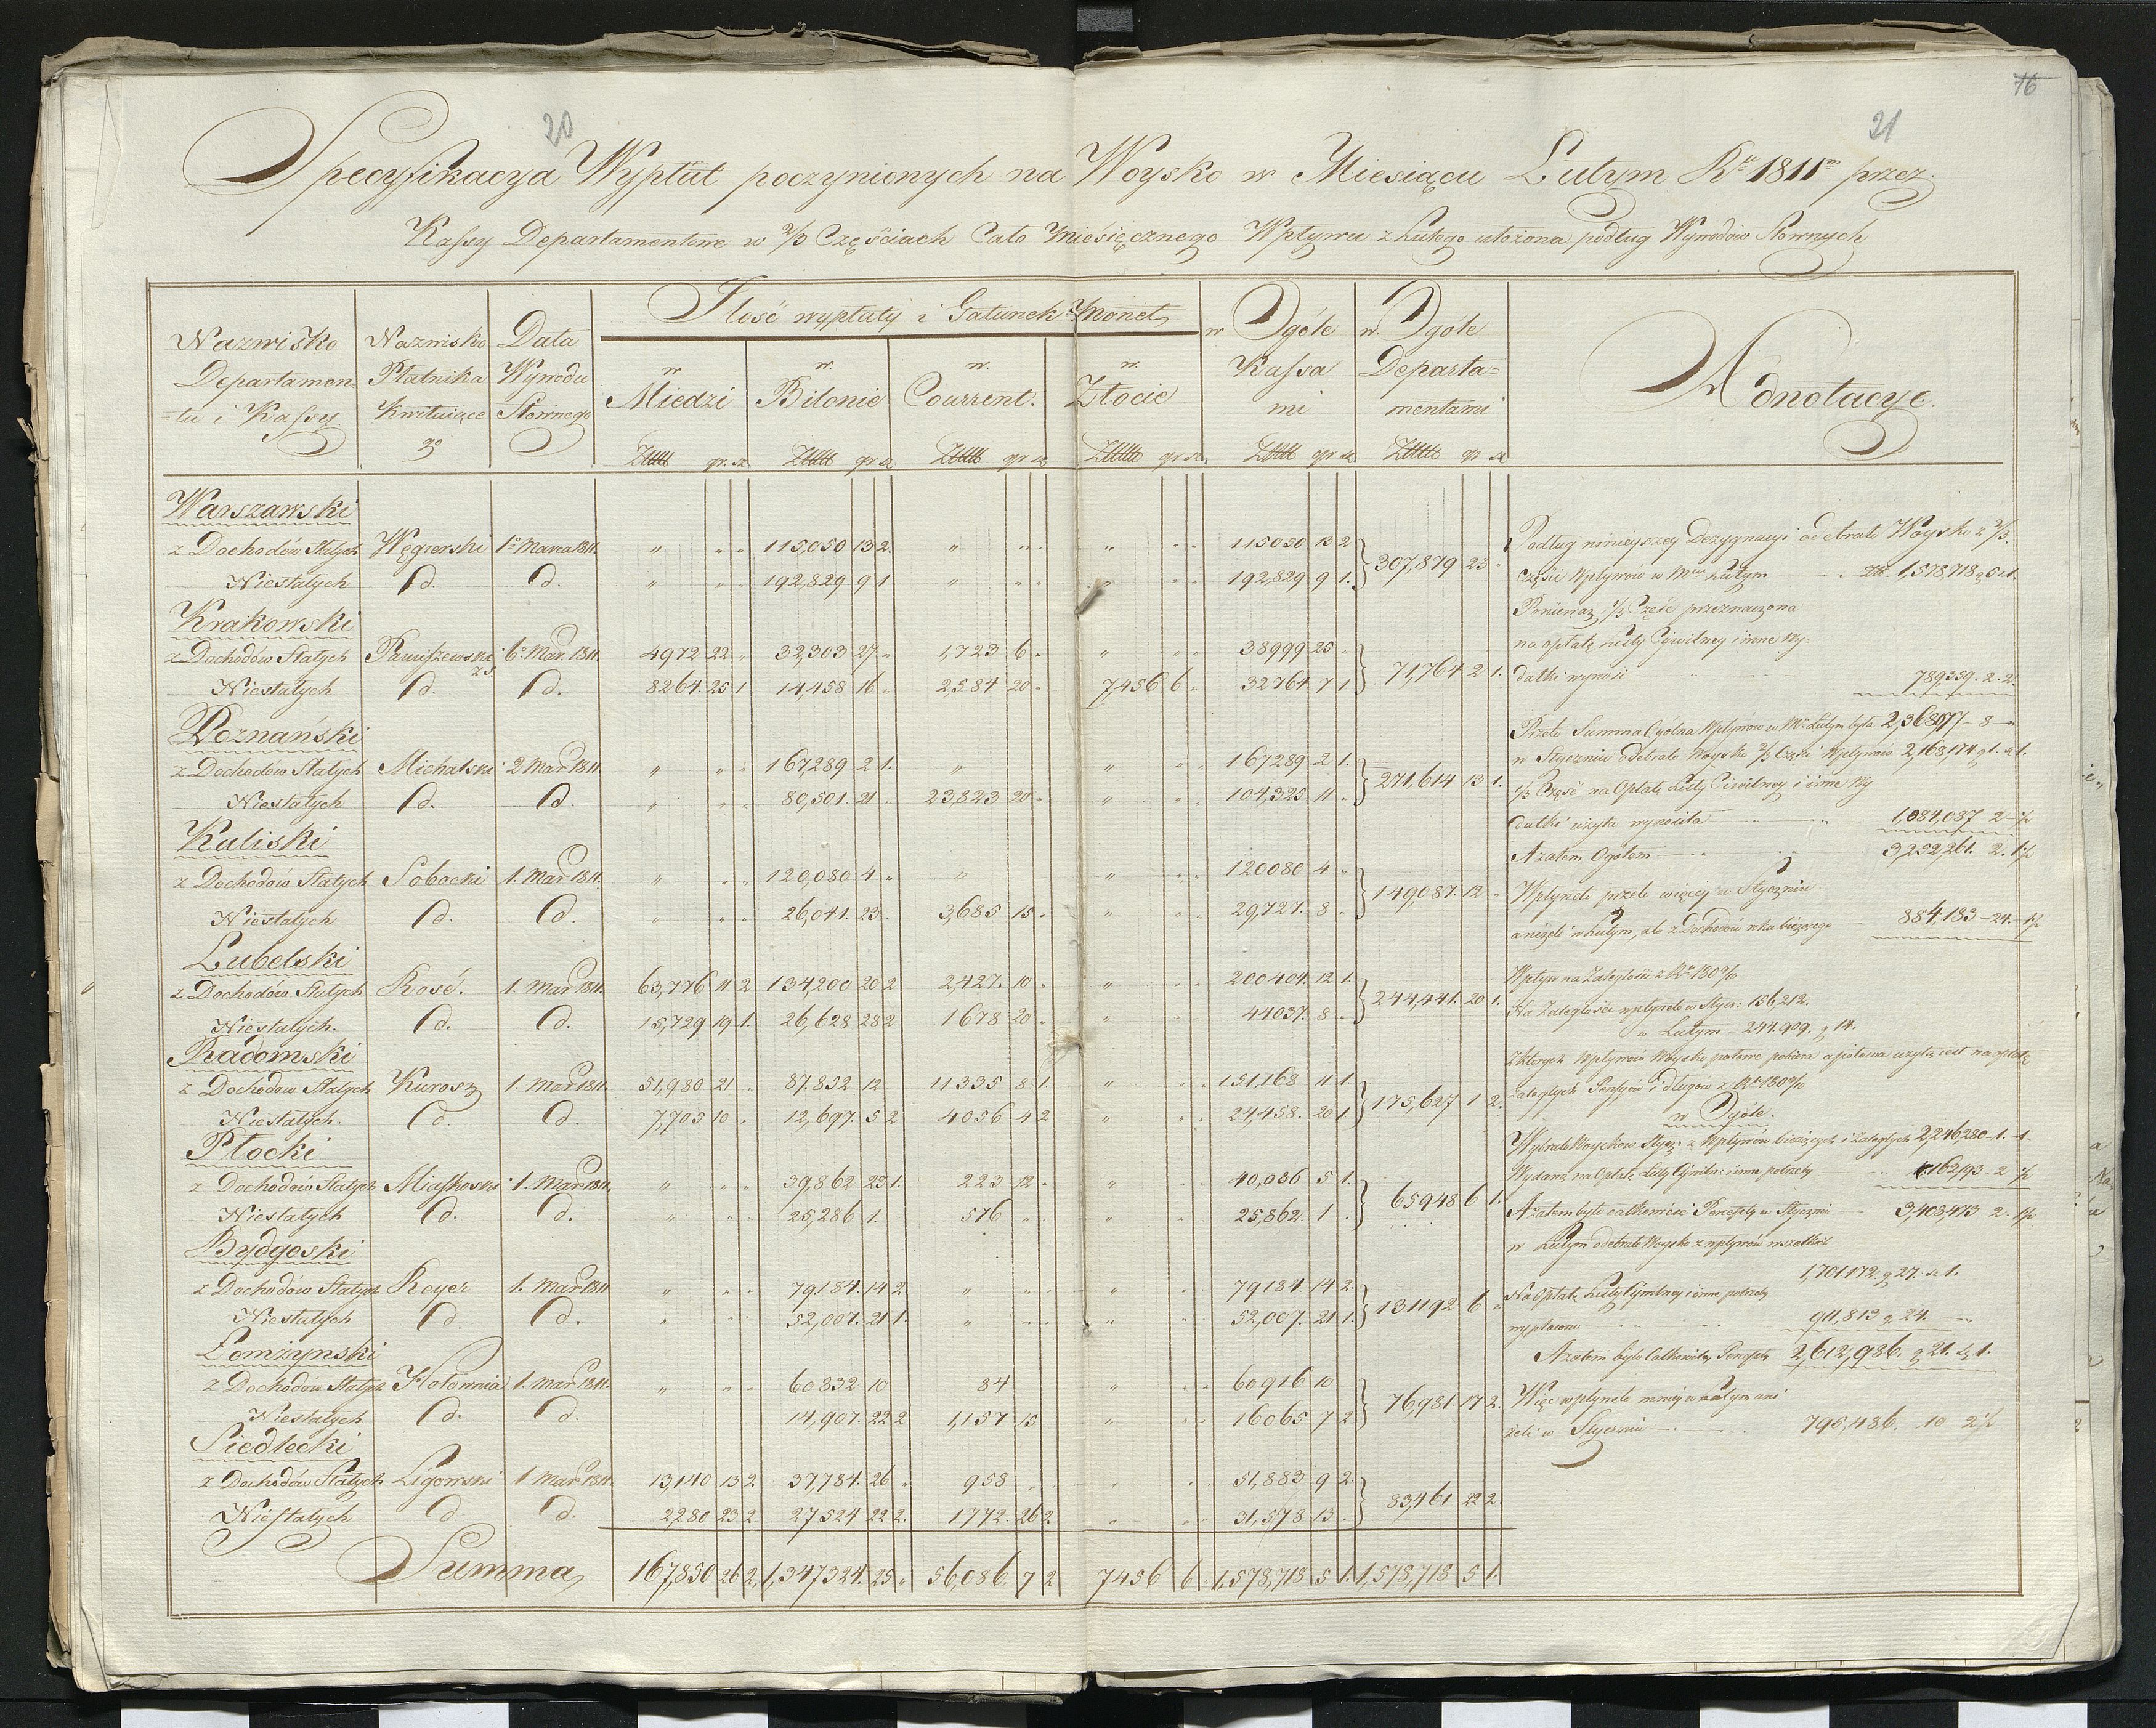 76
20
21
Specyfikacya Wypłat poczynionych na Woysko w Miesiącu Lutym Ru 1811m przez
Kassy Departamentowe w 2/3 Częściach Cało Miesięcznego Wpływu z Lutego ułożona podług Wywodów Słownych
Nazwisko Departamen=tu i Kassy
Nazwisko Płatnika Kwituiące go
Data Wywodu Słownego
Ilość wypłaty i Gatunek Monet
w Miedzi
w Bilonie
w Courrent.
w Złocie
w Ogóle Kassami
w Ogóle Departa=mentami
Adnotacye.
gr. sz. gr sz. gr sz gr sz. gr sz gr sz
Warszawski
z Dochodów Stałych Węgierski 1o Marca 1811. " " " 115,050 13 2. " " " " " " 115050 13 2
Niestałych Id. Id. " " " 192,829 9 1 " " " " " " 192,829 9 1. } 307,879 23 "
Krakowski
z Dochodów Stałych 6o Mar. 1811. 4972 22 " 32,303 27 " 1,723 6 " " " " 38999 25 "
Niestałych Id. Id. 8264 25 1 14,458 16 " 2,584 20 " 7,456 6 " 32764 7 1 } 71,764 2 1.
Poznański
z Dochodów Stałych Michalski 2 Mar 1811. " " " 167289 2 1. " " " " 167289 2 1.
Niestałych Id. Id. " " " 80,501. 21 " 23,823 20 " " " " 104,325 11 " } 271,614 13 1.
Kaliski
z Dochodów Stałych Sobocki 1. Mar 1811. " " " 120,080 4 " " " " " 120080 4 "
Niestałych Id. Id. " " " 26,041. 23 3,685 15 " " " " 29,727. 8 " } 149,087. 12 "
Lubelski
z Dochodów Stałych Rosé. 1. Mar 1811. 63,776 11 2 134,200 20 2 2,427. 10 " " " " 200404. 12 1.
Niestałych. Id. Id. 15,729 19 1. 26,628 28 2 1678 20 " " " " 44037. 8 " } 244,441. 20 1.
Radomski
z Dochodów Stałych Kurosz 1. Mar 1811. 51,980 21 " 87.852 12 11335 8 1. " " " 151,168 11 1.
Niestałych. Id. Id. 7,705 10 " 12,697. 5 2 4056 4 2 " " " 24,458. 20 1 } 175,627 1 2.
Płocki
z Dochodów Stałych Miaskoski 1. Mar 1811. " " " 39,862 23 1. 223 12 " " " " 40,086 5 1.
Niestałych Id. Id. " " " 25,286 1. 576 " " " " " 25,862. 1 " } 65948 6 1.
Bydgoski
z Dochodów Stałych Reyer 1. Mar 1811 " " " 79,184. 14 2. " " " " " " 79184. 14 2.
Niestałych Id. Id. " " " 52,007. 21 1. " " " " " " 52,007. 21 1. } 131192 6 "
Łomżynski
z Dochodów Stałych Hołownia 1. Mar 1811. " " " 60832 10 84 " " " 60916 10
Niestałych Id. Id. 14,907. 22 2 1,157 15 " " " 16065 7 2 } 76,981. 17 2.
Siedlecki
z Dochodów Stałych Ligowski 1 Mar 1811. 13,140 13 2 37,784. 26 " 958 " " " " " 51,883 9 2.
Niestałych Id Id. 2,280 23 2 27524 22 2. 1772. 26 2 " " " 31,578 13 " } 83,461 22 2.
Summa 167,850 26 2, 1,347324. 25 " 56,086. 7 2 7456 6 " 1,578,718 5 1. 1,578,718 5 1.
Podług ninieyszey Dezygnacyi odebrało Woysko z 2/3
części Wpływów w Mcu Lutym zł. 1,578,718 g 5 s 1.
Ponieważ 1/3 Część przeznaczona
na opłatę Listy Cywilney i inne wy=
datki wynosi 789,359. 2. 2.
Przeto Summa Ogólna Wpływów w Mu Lutym była 2,368,077 - 8 - "
w Styczniu odebrało Woysko 2/3 Części Wpływów 2,168,174 g 1. s 1.
1/3 Część na Opłatę Listy Cywilney i inne Wy
datki użyta wynosiła 1,084,087 2
A zatem Ogółem 3,252,261. 2.
Wpłynęło przeto więcey w Styczniu
aniżeli w Lutym, ale z Dochodów roku bieżącego 884,183 - 24.
Wpływ na Zaległości z Ru 1809/10
Na Zaległości wpłynęło w Stycz: 156,212.
w Lutym - 244.909. g 14.
Z których Wpływów Woysko połowę pobiera a połowa użytą iest na opłatę
zaległych Pensyów i długów z Ru 1809/10
w Ogóle.
Wybrało Woysko w Stycz: z Wpływów bieżących i Zaległych 2,246,280 - 1. - 1.
Wydano na Opłatę Listy Cywiln: i inne potrzeby 1,162,193 - 2
A zatem było całkowitość Percepty w Styczniu 3,408,473 2.
w Lutym odebrało Woysko z wpływów wszelkich
1,701.172. g 27. s 1.
Na Opłatę Listy Cywilney i inne potrzeby
wypłacono 911,813 g 24.
A zatem było Całkowitey Percepty 2,612,986. g 21. s 1.
Więc wpłynęło mniey w Lutym ani
żeli w Styczniu 795,486. 10 2